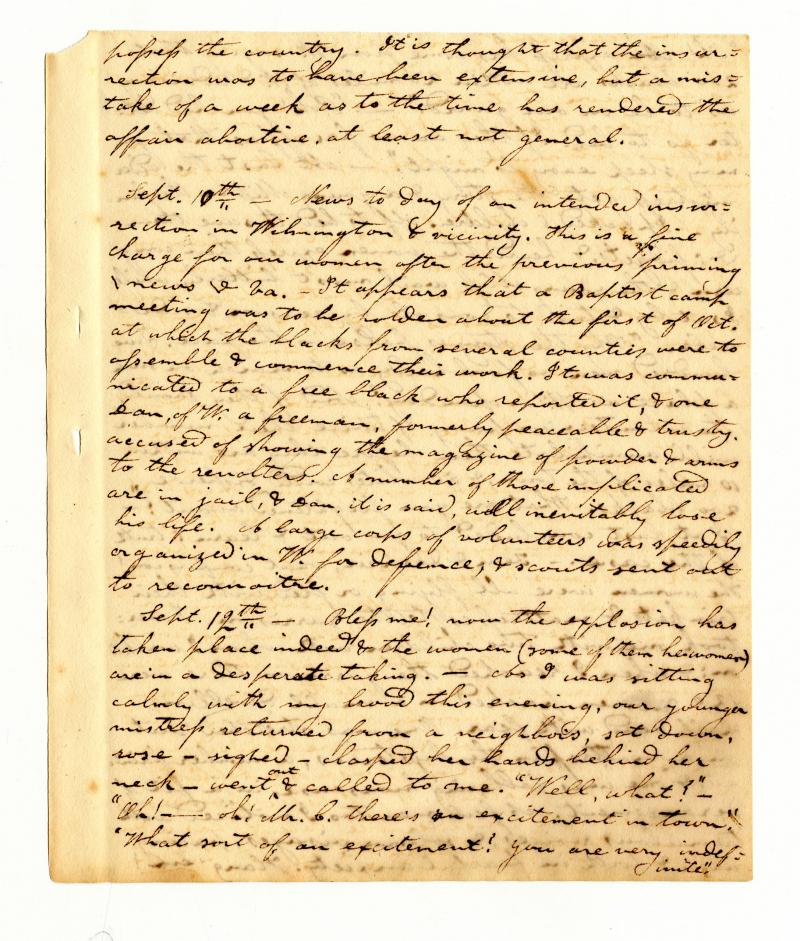 possess the country. It is thought that the insur=
rection was to have been extensive, but a mis=
take of a week as to the time has rendered the
affair abortive, at least not general.
Sept. 10th — News to day of an intended insur=
rection in Wilmington & vicinity. This is a fine
charge for our women after the previous priming
news Va. — It appears that a Baptist camp
meeting was to be holden about the first of Oct.
at which the blacks from several counties were to
assemble & commence their work. It was commu=
nicated to a free black who reported it, & one
Dan, of W. a freeman, formerly peaceable & trusty,
accused of showing the magazine of powder & arms
to the revolters. A number of those implicated
are in jail, & Dan, it is said, will inevitably lose
his life. A large corps of volunteers was speedily
organized in W. for defence, & scouts sent out
to reconnoitre.
Sept. 12th — Bless me! now the explosion has
taken place indeed & the women (some of them he women)
are in a desperate taking. — As I was sitting
calmly with my brood this evening, our younger
mistress returned from a neighbors, sat down,
rose — sighed — clasped her hands behind her
neck — went out & called to me. "Well, what?" —
"Oh! — oh! Mr. C. there's an excitement in town."
"What sort of an excitement? you are very indef=
inite."